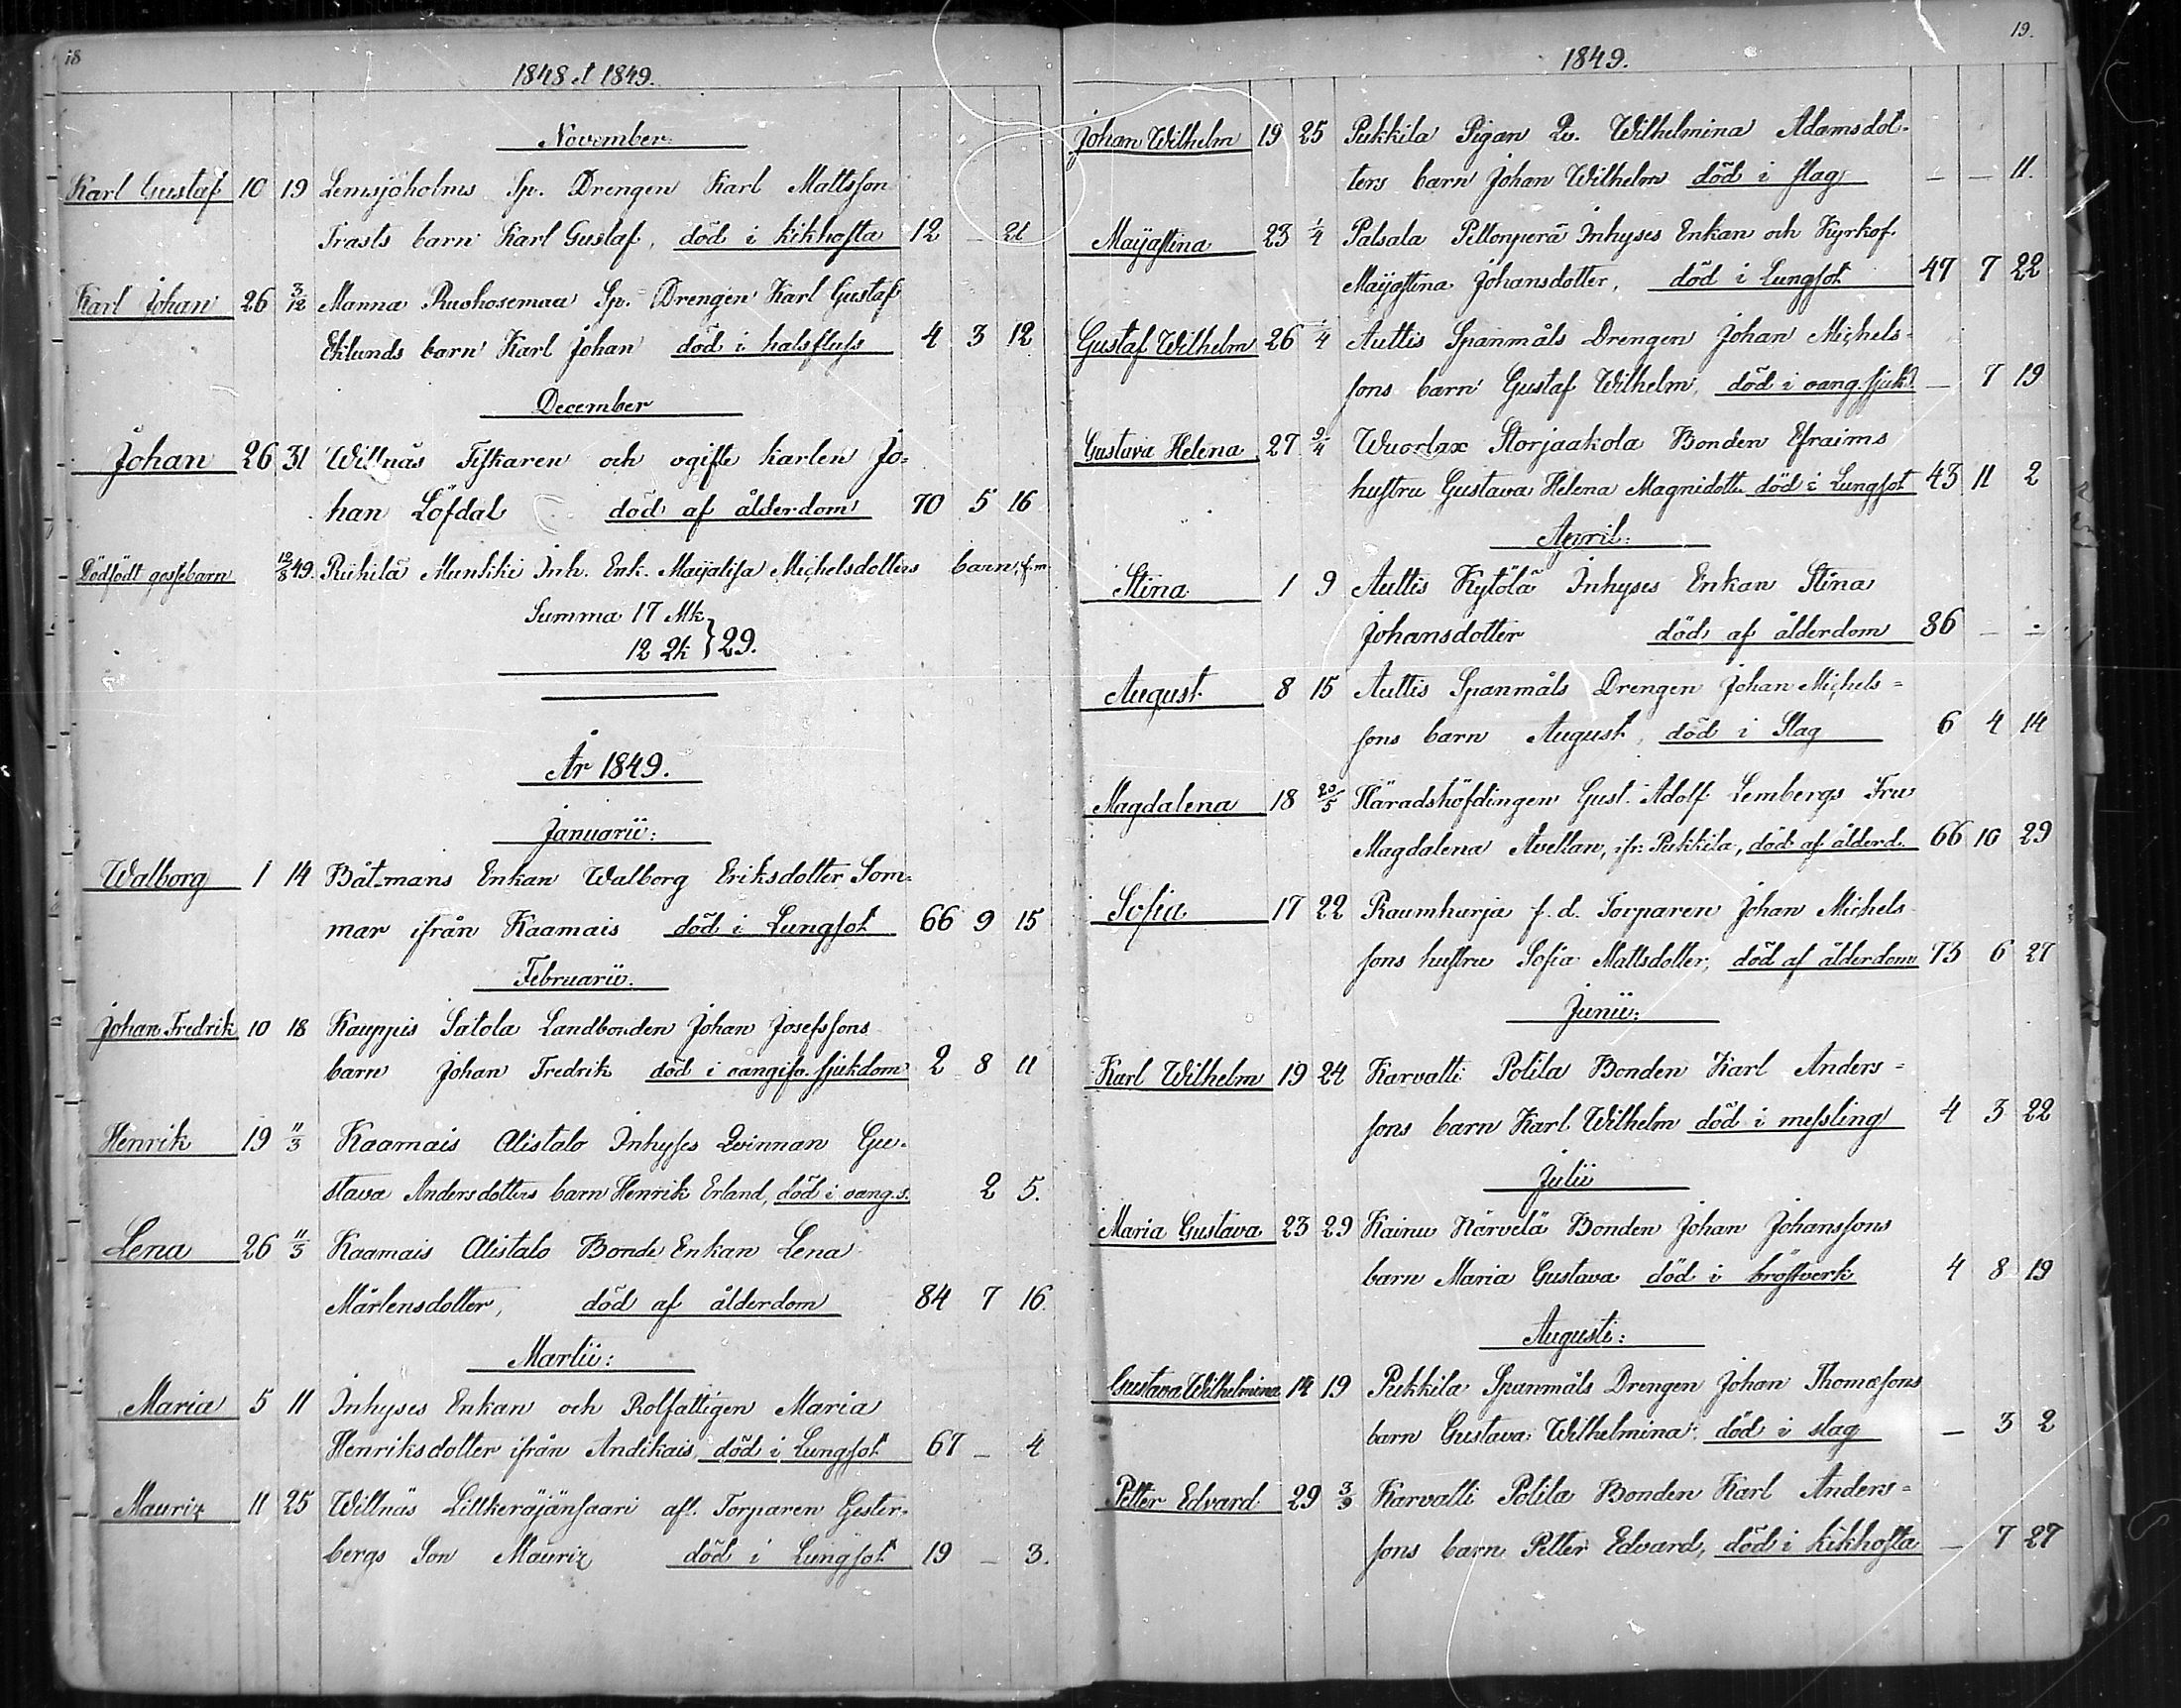 18
1848 et 1849.
November
Karl Gustaf 10 19 Lemsjöholms Sp. Drengen Karl Mattsson
Trasts barn Karl Gustaf, död i kikhosta 12 – 21
Karl Johan 26 3/12 Manna Ruohosemaa Sp. Drengen Karl Gustaf
Eklunds barn Karl Johan död i halsfluss 4 3 12
December
Johan 26 31 Willnäs Fiskaren och ogifte karlen Jo=
han Löfdal död af ålderdom 70 5 16
Dödfödt gossebarn 12/8 49. Riikilä Munkiki Inh. Enk. Maijalisa Michelsdotters barn, f.m.
Summa 17 Mk
12 Qk } 29.
År 1849.
Januarii:
Walborg 1 14 Båtmans Enkan Walborg Eriksdotter Som=
mar ifrån Kaamais död i Lungsot 66 9 15
Februarii.
Johan Fredrik 10 18 Kauppis Satola Landbonden Johan Josefssons
barn Johan Fredrik död i oangifv. sjukdom 2 8 11
Henrik 19 11/3 Kaamais Alistalo Inhyses Qvinnan Gu=
stava Andersdotters barn Henrik Erland, död i oang.s. 2 5.
Lena 26 11/3 Kaamais Alistalo Bonde Enkan Lena
Mårtensdotter, död af ålderdom 84 7 16.
Martii:
Maria 5 11 Inhyses Enkan och Rotfattigen Maria
Henriksdotter ifrån Andikais, död i Lungsot 67 – 4
Mauriz 11 25 Willnäs Littkeräjänsaari afl. Torparen Gester=
bergs Son Mauriz död i Lungsot 19 – 3.
19.
1849.
Johan Wilhelm 19 25 Pukkila Pigan Qv. Wilhelmina Adamsdot=
ters barn Johan Wilhelm död i slag – – 11.
Maijastina 23 1/4 Palsala Peltonperä Inhyses Enkan och Kyrkof.
Maijastina Johansdotter, död i Lungsot 47 7 22
Gustaf Wilhelm 26 1/4 Auttis Spanmåls Drengen Johan Michels=
sons barn Gustaf Wilhelm, död i oang. sjukd. – 7 19
Gustava Helena 27 9/4 Wuorlax Storjaakola Bonden Efraims
hustru Gustava Helena Magnidotter död i Lungsot 43 11 2
April:
Stina 1 9 Auttis Kytölä Inhyses Enkan Stina
Johansdotter död af ålderdom 86 – –
August 8 15 Auttis Spanmåls Drengen Johan Michels=
sons barn August, död i Slag 6 4 14
Magdalena 18 20/5 Häradshöfdingen Gust. Adolf Lembergs Fru
Magdalena Avellan, ifr. Pukkila, död af ålderd. 66 10 29
Sofia 17 22 Raumhurja f. d. Torparen Johan Michels
sons hustru Sofia Mattsdotter, död af ålderdom 73 6 27
Junii:
Karl Wilhelm 19 24 Karvatti Polila Bonden Karl Anders=
sons barn Karl Wilhelm död i messling 4 3 22
Julii
Maria Gustava 23 29 Kainu Härvelä Bonden Johan Johanssons
barn Maria Gustava död i bröstverk 4 8 19
Augusti:
Gustava Wilhelmina 14 19 Pukkila Spanmåls Drengen Johan Thomæsons
barn Gustava Wilhelmina död i slag – 3 2
Petter Edvard 29 3/9 Karvatti Polila Bonden Karl Anders=
sons barn Petter Edvard, död i kikhosta – 7 27